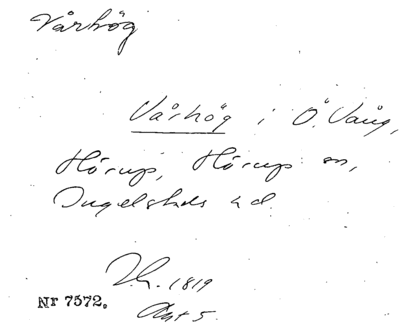 Vårhög
Vårhög i Ö. Vång,
Hörup, Hörup sn,
Ingelstads hd.
1819
Akt 5.
Nr 7572.